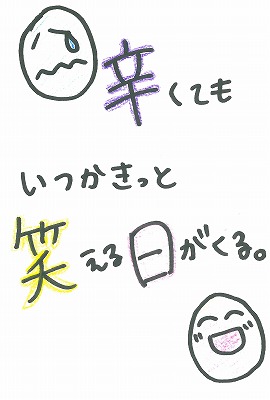 辛くても
いつかきっと
笑える日がくる。